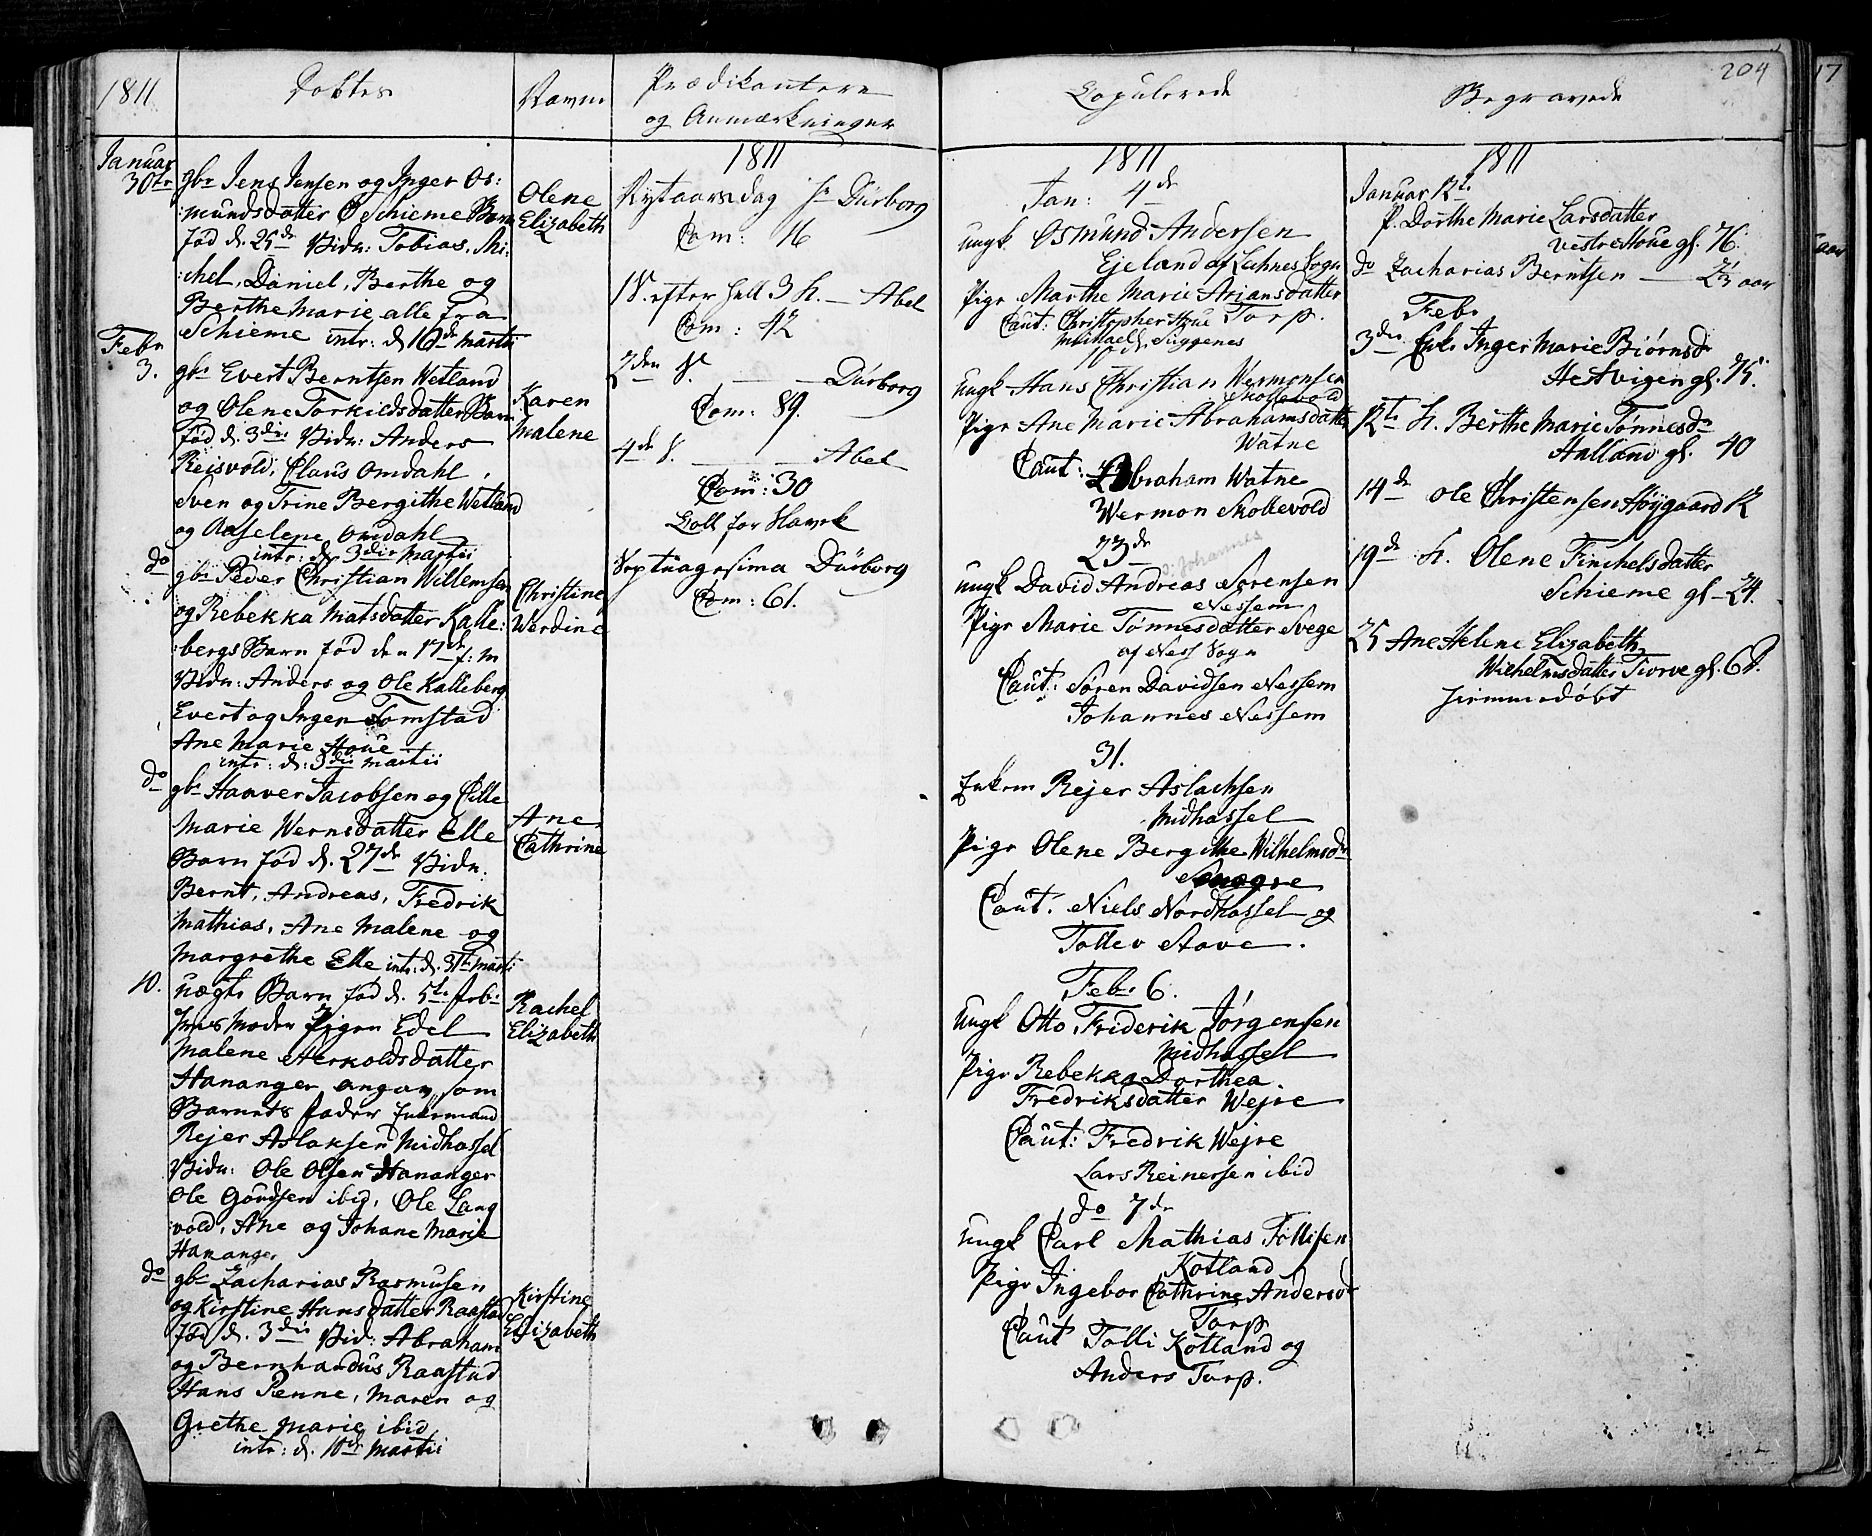 1811
Døbte
Navne
Prædikantere
og Anmærkninger
Januar
30te
gbr Jens Jensen og Inger Os:
:mundsdatter Schieme Barn
fød d. 25de Vidn: Tobias, Mi:
:chel, Daniel, Berthe og
Berthe Marie alle fra
Schieme intr: d. 16de Martii
Olene
Elizabeth
Febr
3.
gbr Evert Berntsen Wetland
og Olene Torkildsdatter Barn
fød d. 3die Vidn: Anders
Reisvold, Claus Omdahl,
Sven og Trine Bergithe Wetland
og Aaselene Omdahl
intr: d. 3die Martii
Karen
Malene
do
gbr Peder Christian Willemsen
og Rebekka Matsdatter Kalle:
:bergs Barn fød den 17de f: M
Vidn: Anders og Ole Kalleberg
Evert og Inger Tomstad
Ane Marie Houe
intr: d: 3die Martii
Christine
Werdine
do
gbr Hanver Jacobsen og Cille
Marie Wernsdatter Elle
Barn fød d. 27de Vidn:
Bernt, Andreas, Fredrik
Mathias, Ane Malene og
Margrethe Elle intr: d. 31te Marti
Ane
Cathrine
10.
uægte Barn fød d. 5te Febr
Moder Pigen Edel
Malene Aerkoldsdatter
Hananger angav som
Barnets Fader Enkemand
Rejer Aslaksen Midhassel
Vidn: Ole Olsen Hananger
Ole Gundsen ibid, Ole Lang
vold, Ane og Johane Marie
Hananger
Rachel
Elizabeth
do
gbr Zacharias Rasmusen
og Kirstine Hansdatter Raastad
fød d. 3die Vid: Abraham
og Bernhardus Raastad
Hans Penne, Maren og
Grethe Marie ibid
intr: d. 10de Martii
Kirstine
Elizabeth
1811
Nytaarsdag Hr Dürborg
Com: 16
1 S. efter hell 3 K. — Abel
Com: 42
2den S. — — Dürborg
Com: 89.
4de S. — — Abel
Com: 30
Coll for Hawrk
Septuagesima Dürborg
Com: 61.
204
Copulerede
Begravede
1811
Jan: 4de
Ungk Osmund Andersen
Ejeland af Lehnes Sogn
Pige Marthe Marie Ariansdatter
Torp.
Caut: Christopher Houe
Michael Siggenes
10de
Ungk Hans Christian Wermonsen
Skollevold
Pige Ane Marie Abrahamsdatter
Watne
Caut: Abraham Watne
Wermon Skollevold
23de
Johannes
Ungk David Andreas Sørensen
Nessem
Pige Marie Tønnesdatter Svege
af Ness Sogn
Caut: Søren Davidsen Nessem
Johannes Nessem
31.
Enkem Rejer Aslachsen
Midhassel
Pige Olene Bergithe Wilhelmsdr
Caut: Niels Nordhassel og
Tollev Stave.
Febr 6.
Ungk Otto Friderik Jørgensen
Midhassel
Pige Rebekka Dorthea
Fredriksdatter Wejre
Caut: Fredrik Wejre
Lars Reinersen ibid
do 7de
Ungk Carl Mathias Tollisen
Kotland
Pige Ingebor Cathrine Andersdr
Torp
Caut Tolli Kotland og
Anders Torp.
1811
Januar 12te
P. Dorthe Marie Larsdatter
Vestre Houe gl. 76.
do Zacharias Berntsen — 2½ aar
Febr
3die Enke Inger Marie Biørnsdr
Hestvigen gl. 75.
12te K. Berthe Marie Tønnesdr
Halland gl. 40
14de Ole Christensen Høygaard 12
19de K. Olene Finchelsdatter
Schieme gl — 24.
25 Ane Helene Elizabeth
Wilhelmsdatter Tiorve gl. 6 D.
hiemmedøbt